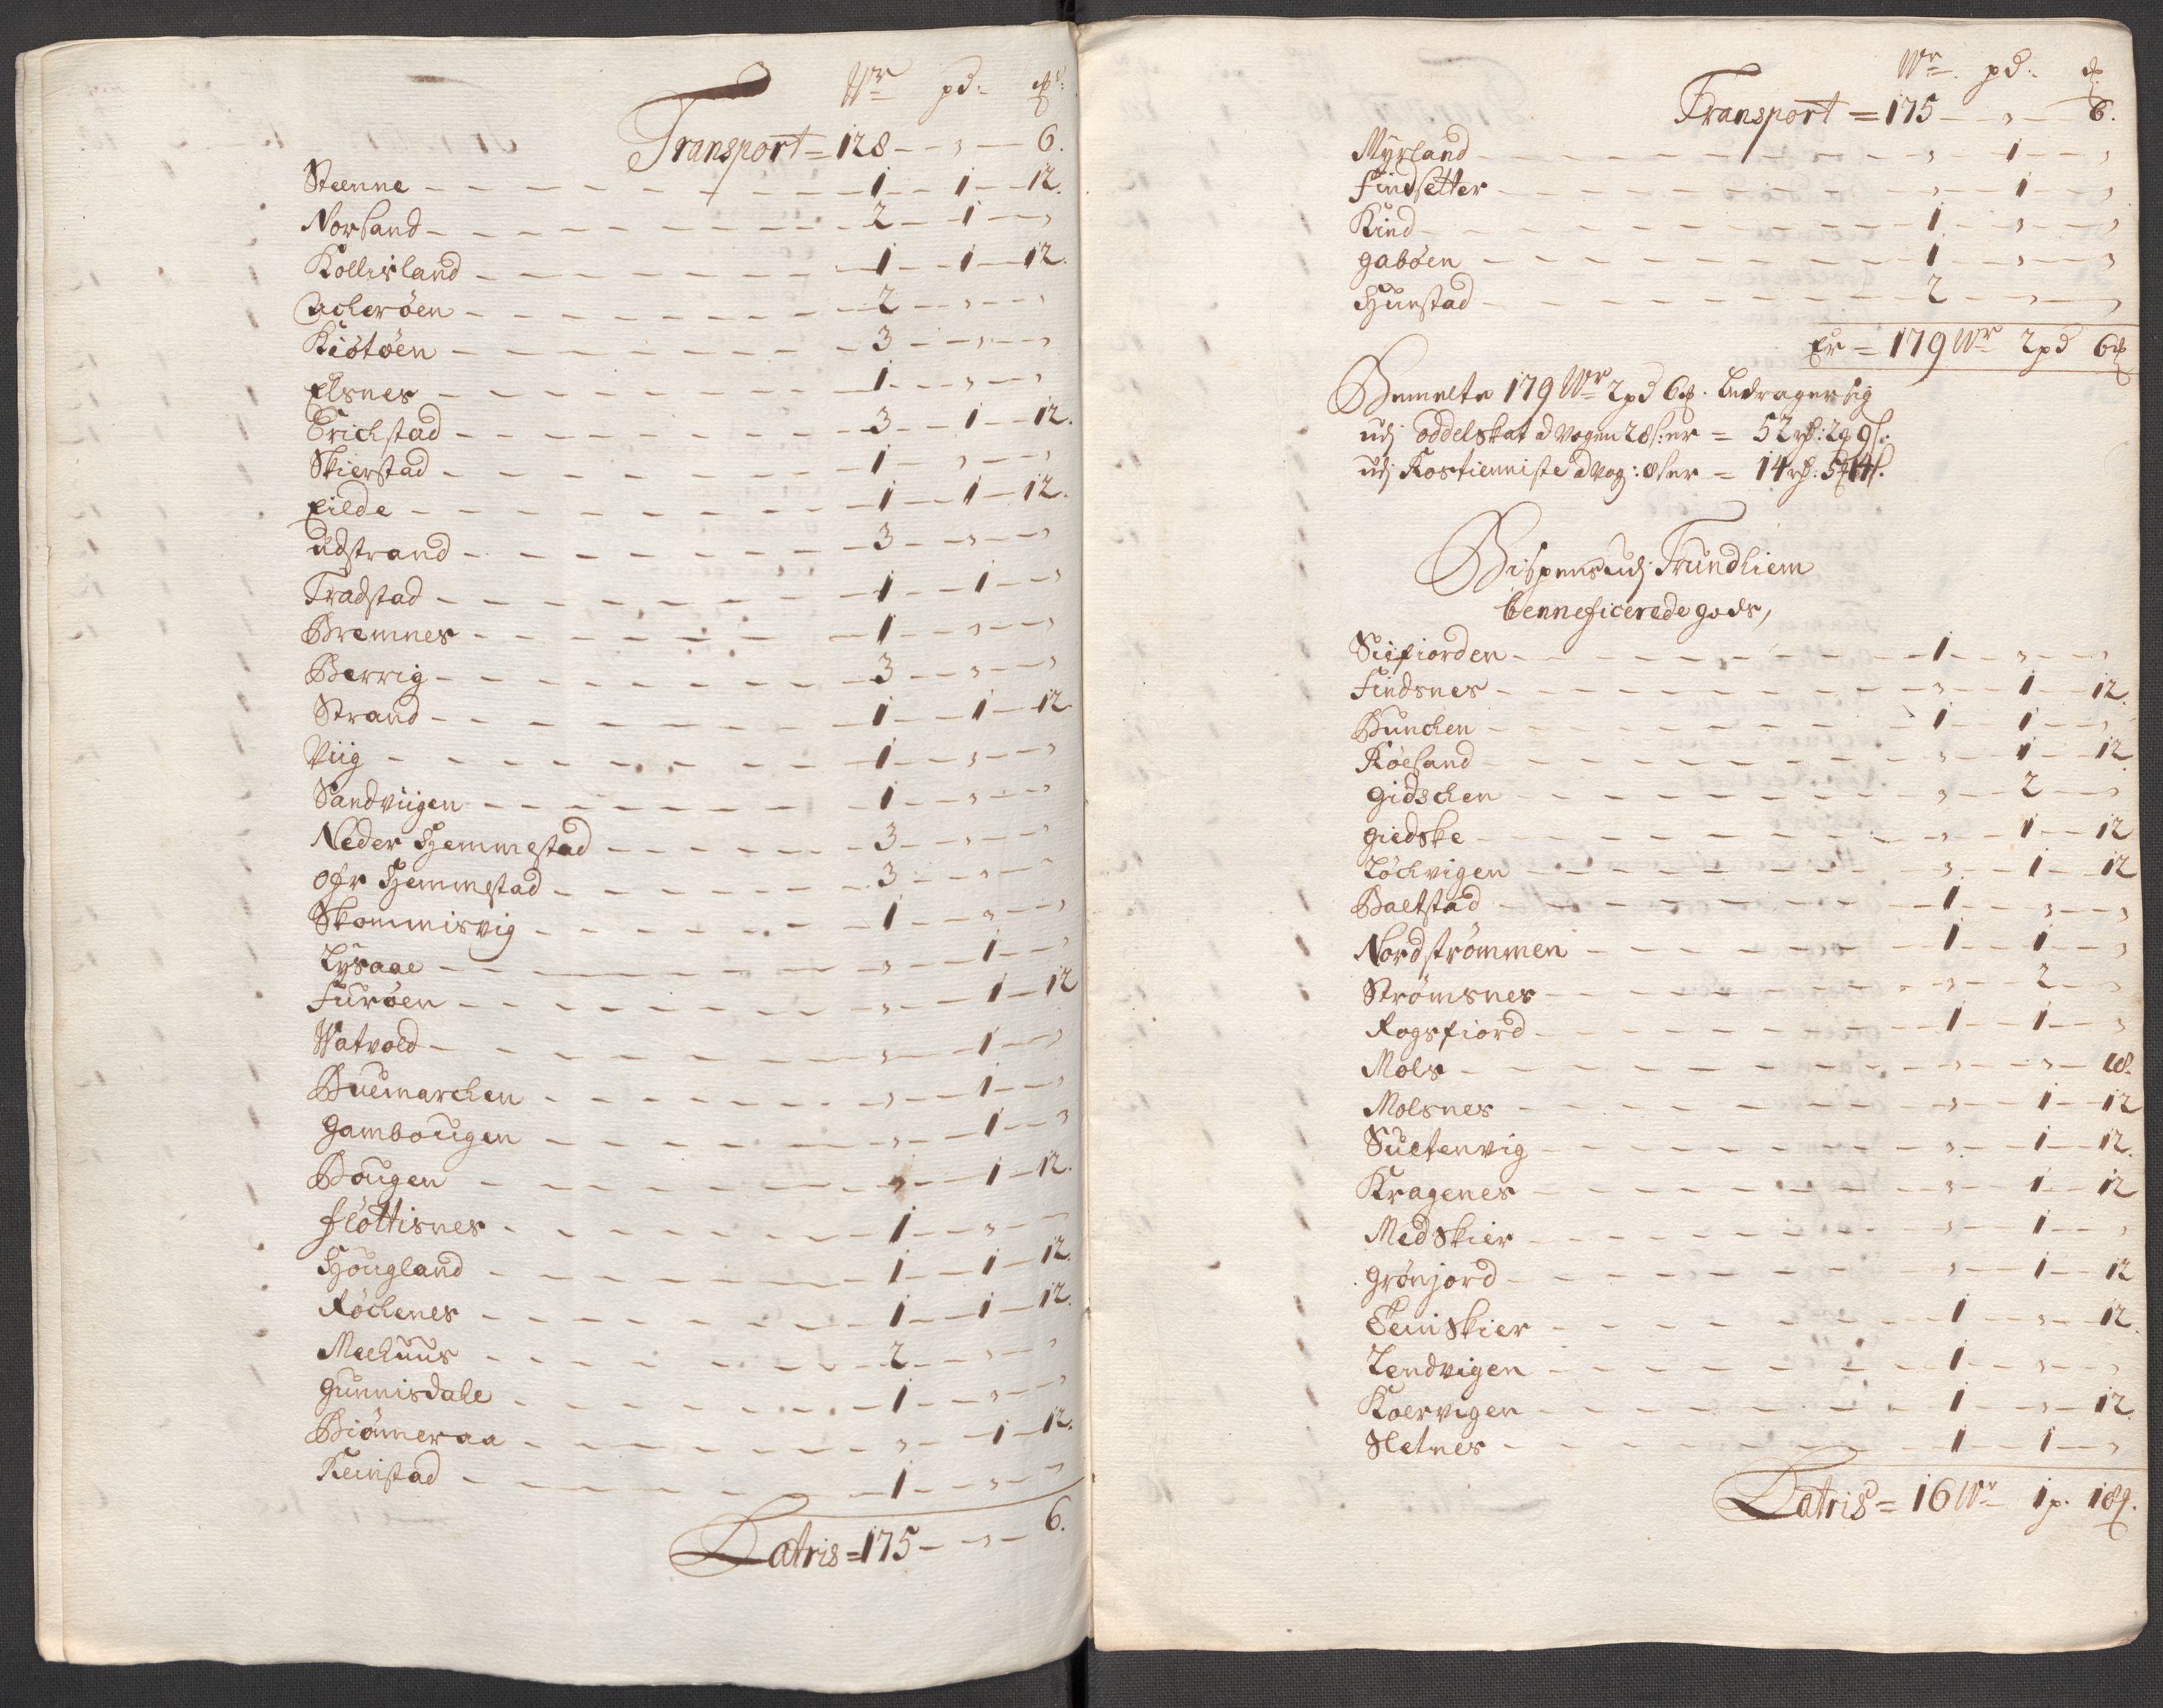 Wr pd: ℔:
Transport = 128 - , - 6.
Steenne - 1 - 1 - 12.
Norland - 2 - 1 - ,
Kollisland - 1 - 1 - 12.
Acherøen - 2 - , - ,
Kiøtøen - 3 - , - ,
Elsnes - 1 - , - ,
Erichstad - 3 - 1 - 12.
Skierstad - 1 - , - ,
Eilde - 1 - 1 - 12.
Udstrand - 3 - , - ,
Fradstad - 1 - 1 - ,
Bremnes - 1 - , - ,
Berrig - 3 - , - ,
Strand - 1 - 1 - 12.
Viig - 1 - , - ,
Sandviigen - 1 - , - ,
Neder Hemmestad - 3 - , - ,
Ofr Hemmestad - 3 - , - ,
Skommisvig - 1 - , - ,
Lysaae - , - 1 - ,
Furøen - , - 1 - 12
Watvold - , - 1 - ,
Buemarchen - , - 1 - ,
Gambougen - , - 1 - ,
Bougen - , - 1 - 12.
Fløttisnes - 1 - , - ,
Hougland - 1 - 1 - 12.
Røchenes - 1 - 1 - 12.
Meehuus - 2 - , - ,
Gunnisdale - 1 - , - ,
Biønneraa - , - 1 - 12.
Keinstad - 1 - , - ,
Latris = 175 - , - 6.
Wr pd: ℔
Transport = 175 - , - 6.
Myrland - , - 1 - ,
Findsetter - , - 1 - ,
Kind - 1 - , - ,
Gabøen - 1 - , - ,
Hunstad - 2 - , - ,
Er = 179 Wr 2 pd 6 ℔
Bemelte 179 Wr 2 pd 6 ℔. bedrager sig
udj Oddelskat a Vogen 28 s: er = 52 rd: 2 q 9 s:
udj Rostienniste a Vog: 8 s er = 14 rd: 5 q 14 s.
Bispens udj Trundhiem
benneficerede gods,
Siifiorden - 1 - , - ,
Findsnes - , - 1 - 12.
Bunchen - 1 - 1 - ,
Røeland - , - 1 - 12
Gidschen - , - 2 - ,
Giedske - , - 1 - 12
Løchvigen - , - 1 - 12
Baltstad - 1 - , - ,
Nordstrømmen - 1 - 1 - ,
Strømsnes - , - 2 - ,
Rogsfiord - 1 - 1 - ,
Mols - , - , - 18.
Molsnes - , - 1 - 12
Sultenvig - , - 1 - 12.
Kragenes - , - 1 - 12
Medskier - , - 1 - ,
Grønjord - , - 1 - 12
Temskier - 1 - , - 12.
Lendvigen - 1 - , - ,
Koervigen - 1 - , - 12.
Sletnes - 1 - 1 - ,
Latris = 16 Wr 1 p. 18 ℔.